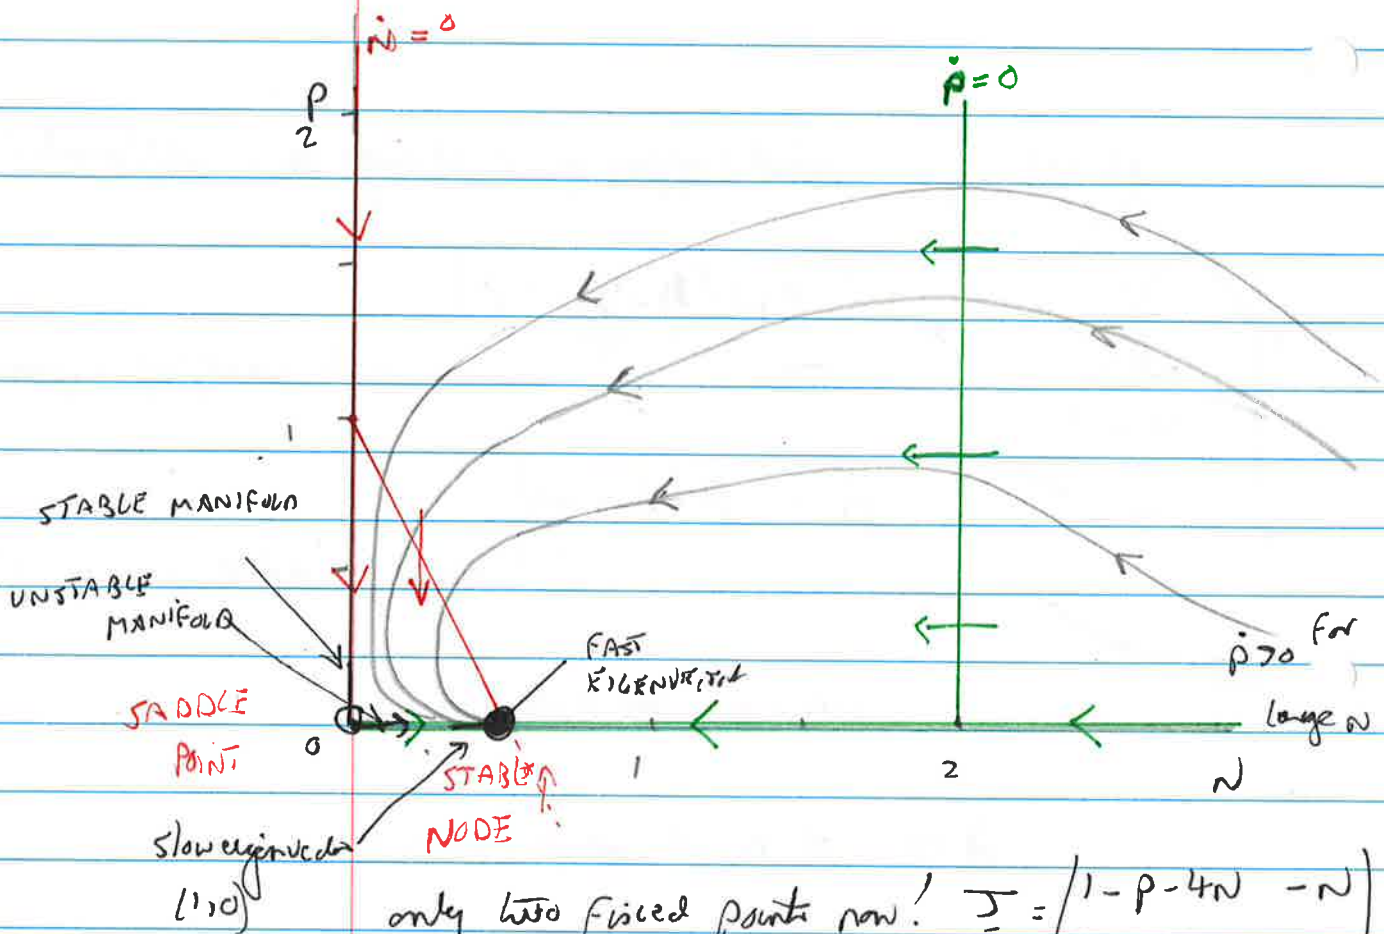 Ṅ = 0
P
2
Ṗ = 0
1
STABLE MANIFOLD
UNSTABLE
MANIFOLD
FAST
for
Ṗ >0
large N
SADDLE
POINT
0
STABLE
NODE
1
2
N
Slow eigenvector
(1,0)
only two fixed points now! J = | 1-P-4N -N |